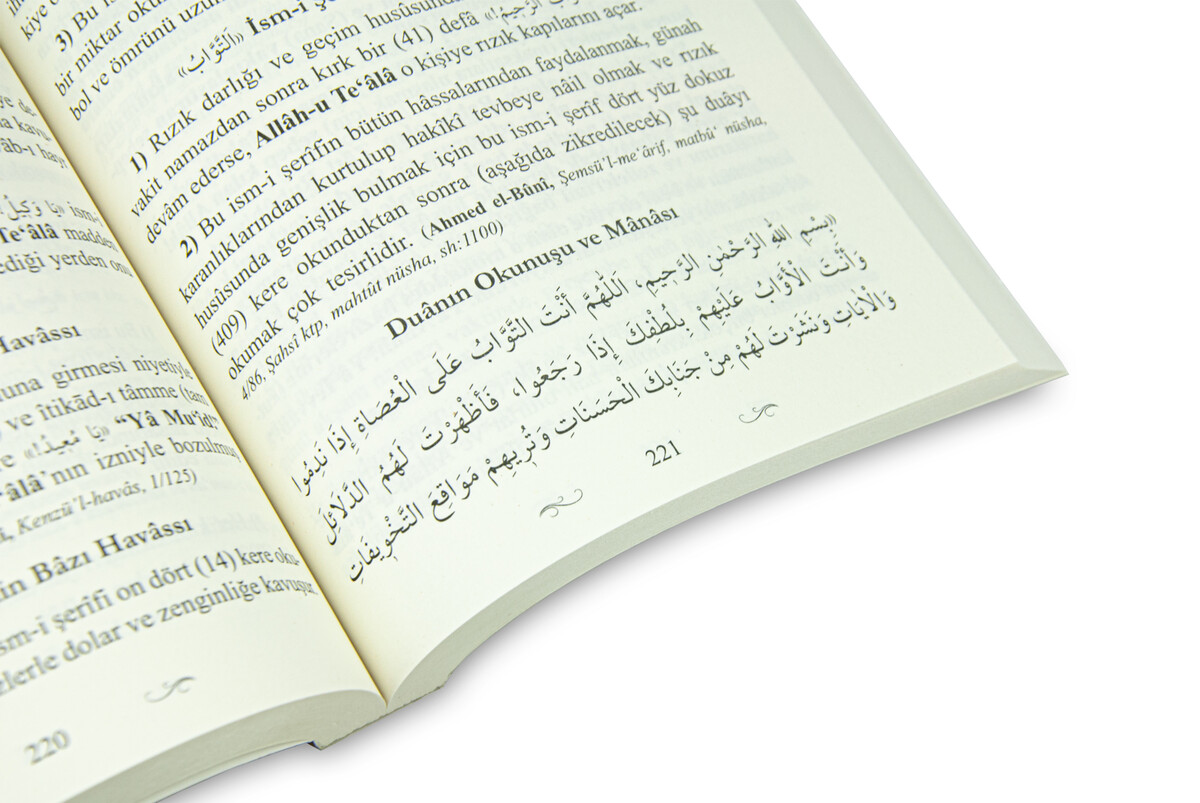 kiye
3) Bu
bir miktar
bol ve ömrünü
«اَلتَّوَّابُ» İsm-i
1) Rızık darlığı ve geçim husûsunda
vakit namazdan sonra kırk bir (41) defâ
devâm ederse, Allâh-u Te‘âlâ o kişiye rızık kapılarını açar.
2) Bu ism-i şerîfin bütün hâssalarından faydalanmak, günah
karanlıklarından kurtulup hakîkî tevbeye nâil olmak ve rızık
husûsunda genişlik bulmak için bu ism-i şerîf dört yüz dokuz
(409) kere okunduktan sonra (aşağıda zikredilecek) şu duâyı
okumak çok tesirlidir. (Ahmed el-Bûnî, Şemsü’l-me‘ârif, matbû‘ nüsha,
4/86, Şahsî ktp, mahtût nüsha, sh:1100)
Duânın Okunuşu ve Mânâsı
«بِسْمِ اللّٰهِ الرَّحْمٰنِ الرَّحِيمِ، اَللّٰهُمَّ أَنْتَ التَّوَّابُ عَلَى الْعُصَاةِ إِذَا نَدِمُوا
وَأَنْتَ الْأَوَّابُ عَلَيْهِمْ بِلُطْفِكَ إِذَا رَجَعُوا، فَأَظْهَرْتَ لَهُمُ الدَّلَائِلَ
وَالْاٰيَاتِ وَنَشَرْتَ لَهُمْ مِنْ جَنَابِكَ الْحَسَنَاتِ وَتُرِيهِمْ مَوَاقِعَ التَّخْوِيفَاتِ
221
«يَا وَكِيلُ
Te‘âlâ
yerden
Havâssı
girmesi niyetiyle
ve îtikâd-ı tâmme (tam
«يَا مُعِيدُ!» “Yâ Mu‘îd!”
‘âlâ’nın izniyle
Kenzü’l-havâs, 1/125)
Bâzı Havâssı
şerîfi on dört (14) kere
dolar ve zenginliğe kavuşur.
220